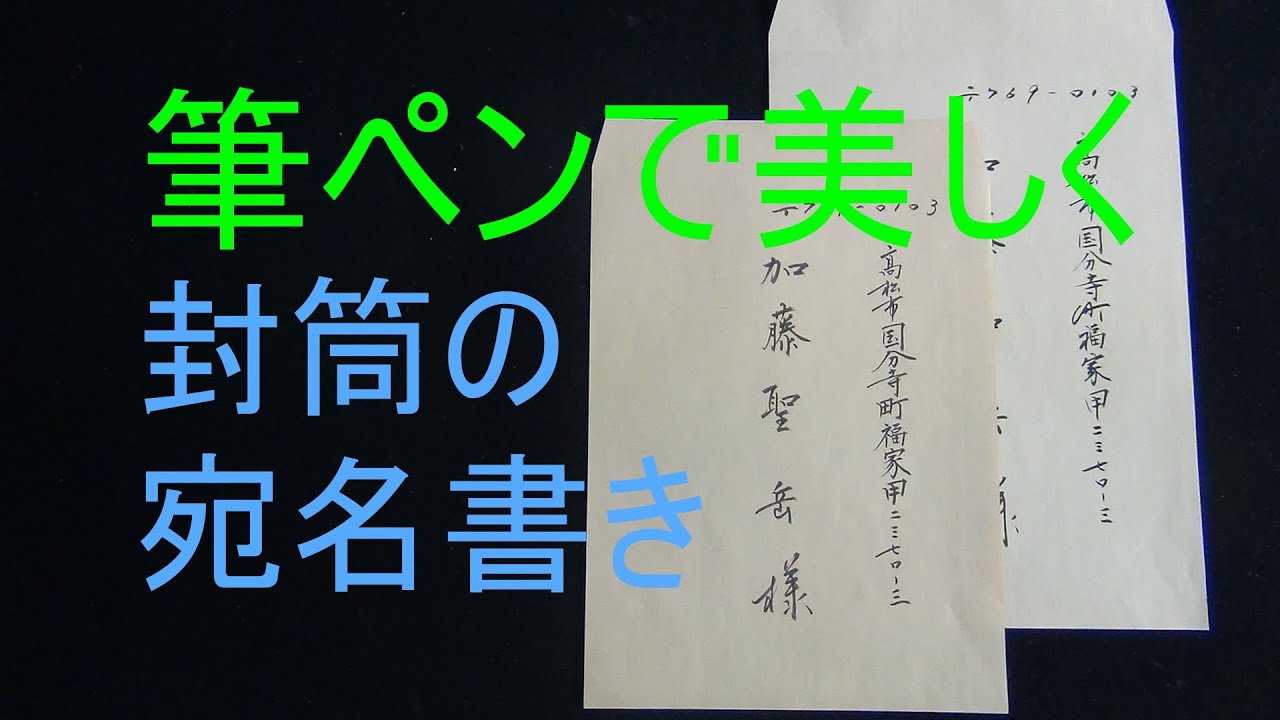 筆ペンで美しく
封筒の
宛名書き
高松市国分寺町福家甲二三七〇-三
加藤聖岳様
〒769-0103
高松市国分寺町福家甲二三七〇-三
様